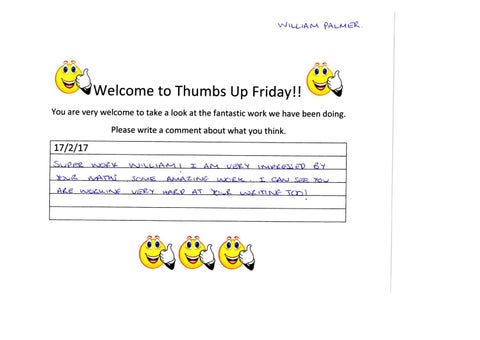 WILLIAM PALMER.
Welcome to Thumbs Up Friday!!
You are very welcome to take a look at the fantastic work we have been doing.
Please write a comment about what you think.
17/2/17
SUPER WORK WILLIAM! I AM VERY IMPRESSED BY
YOUR MATHS. SOME AMAZING WORK. I CAN SEE YOU
ARE WORKING VERY HARD AT YOUR WRITING TOO!